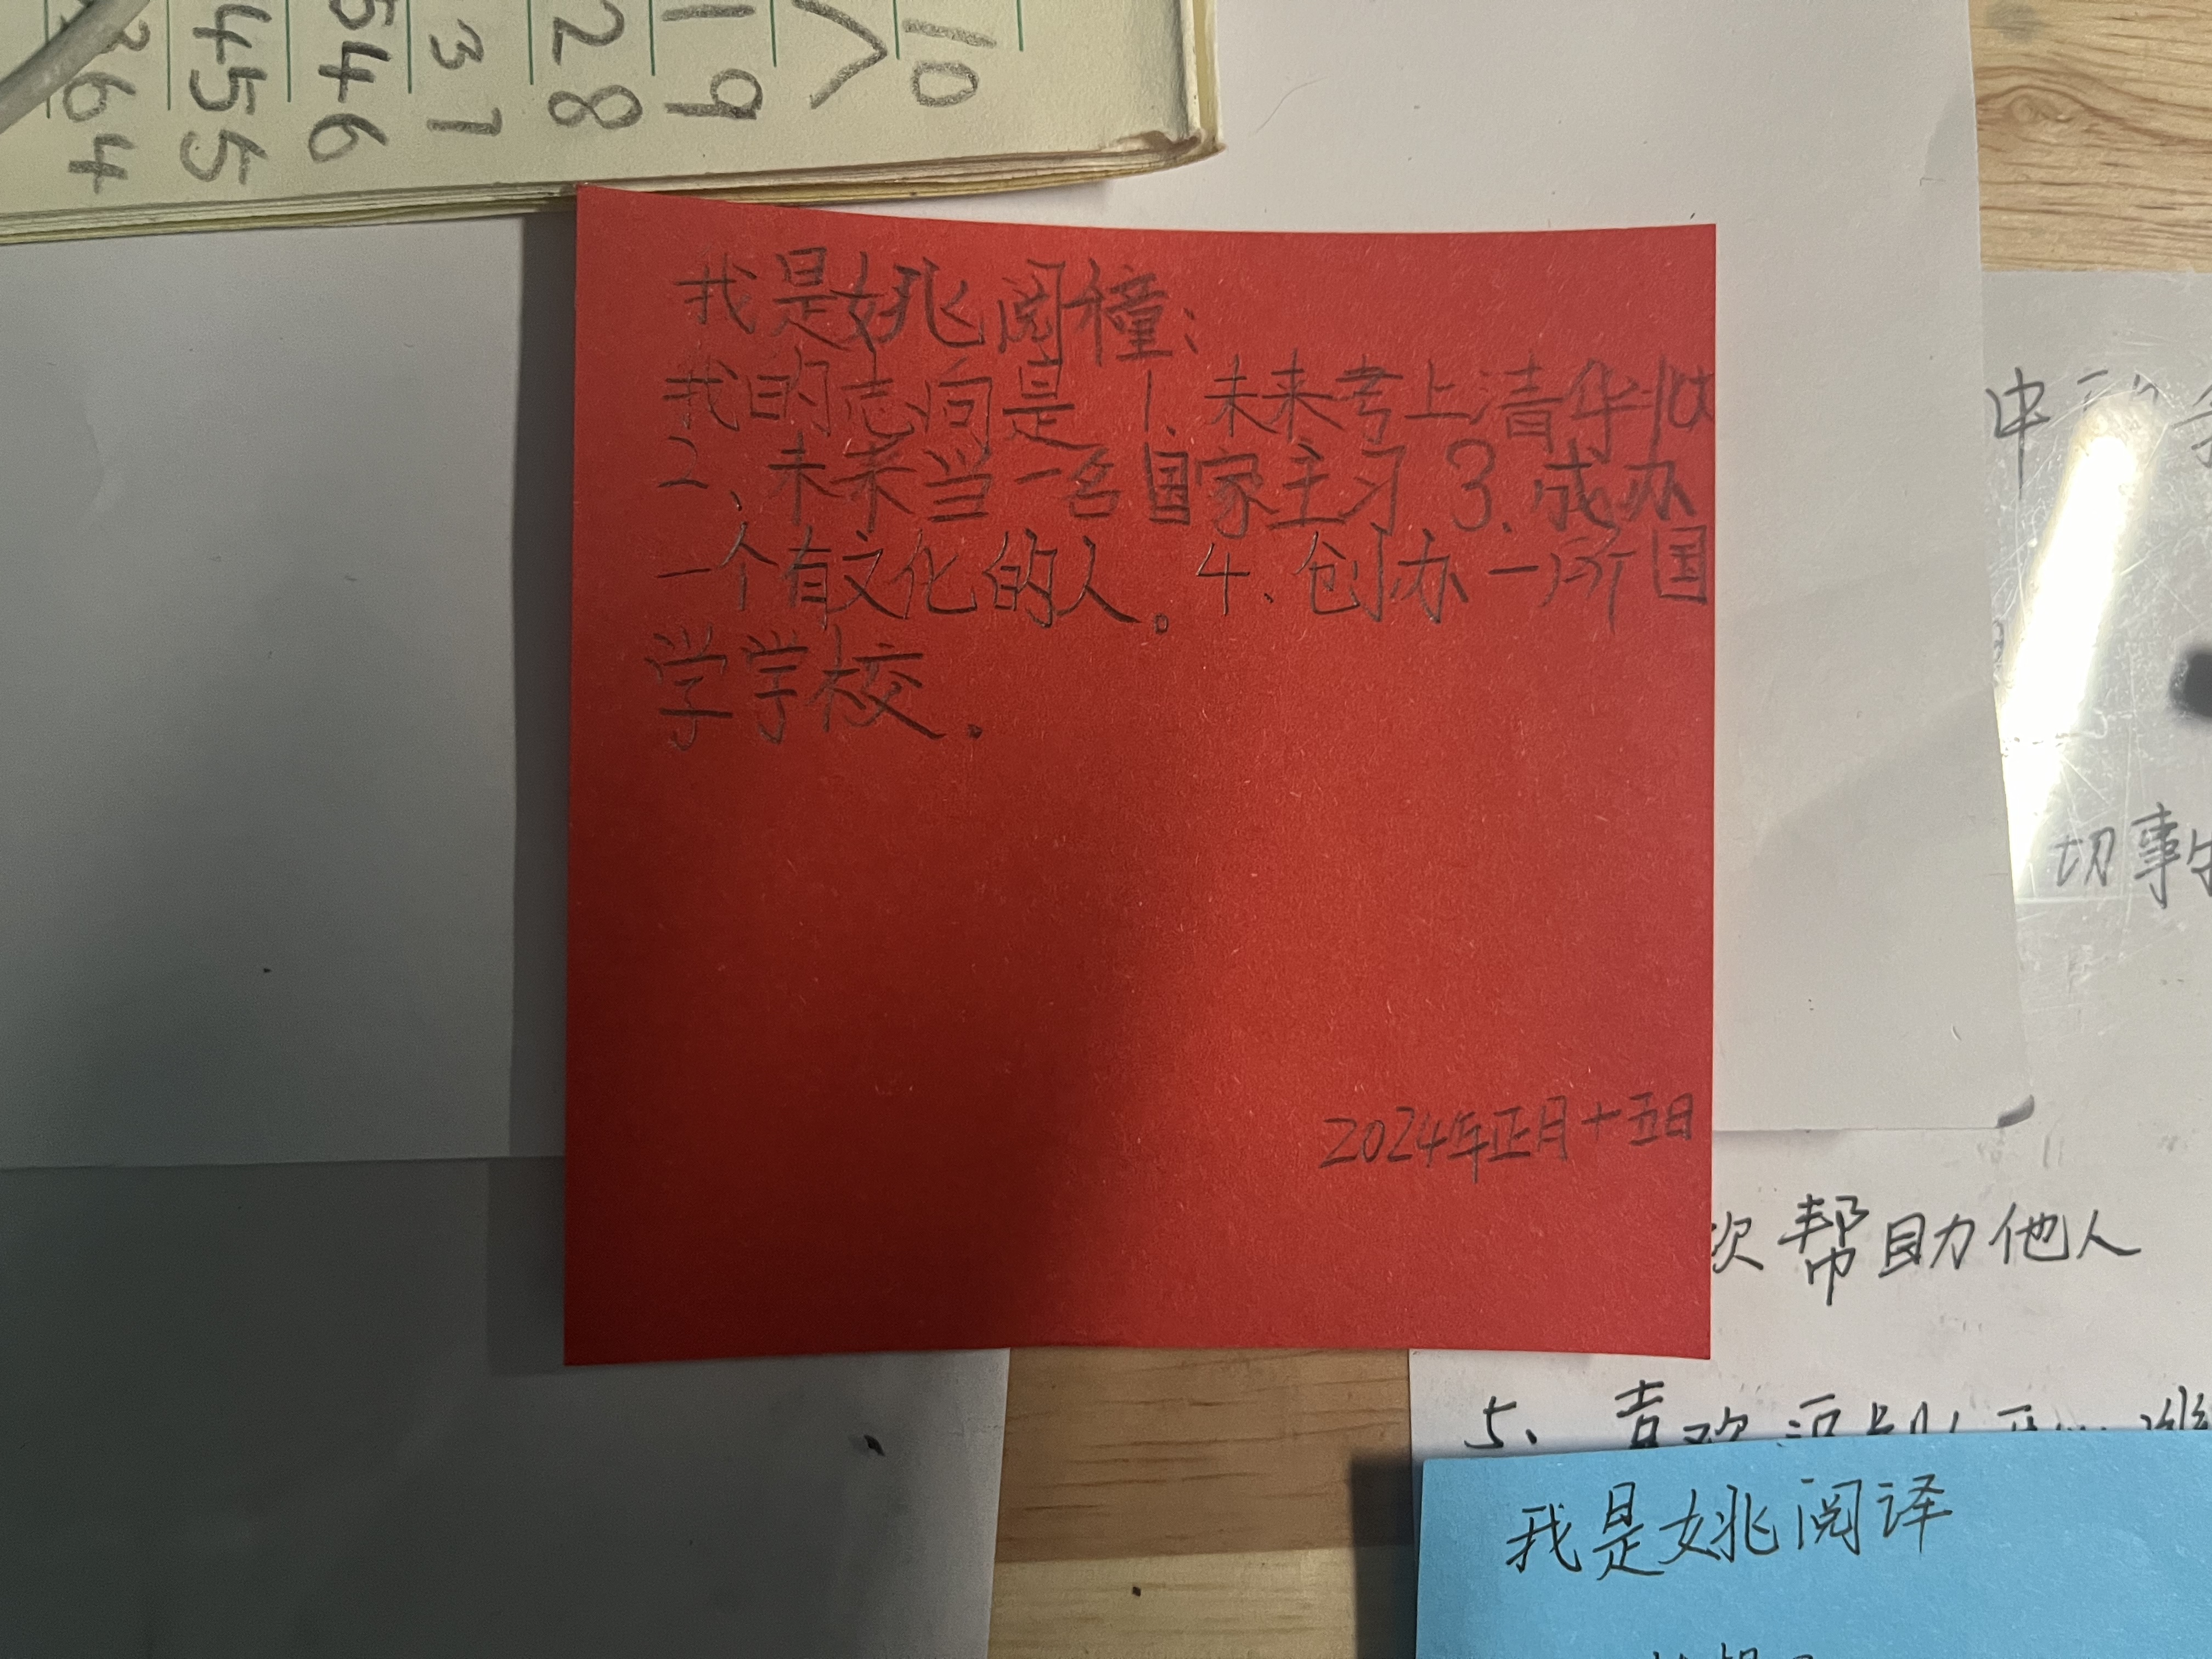 10
1 9
2 8
3 7
546
455
364
我是姚阅橦:
我的志向是 1. 未来考上清华北
2、未来当一名国家主习 3. 成办
一个有文化的人。4、创办一所国
学学校.
2024年正月十五日
中
切事
次帮助他人
5、喜欢
我是姚阅译